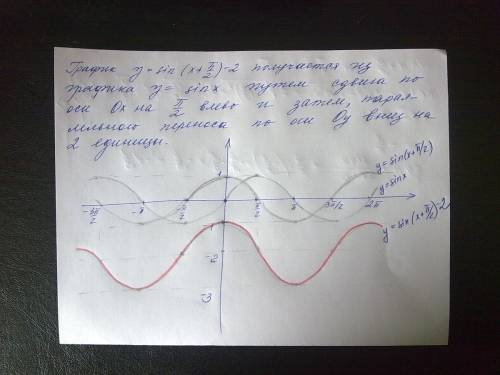 График y=sin(x+π/2)-2 получается из
графика y= sinx путем сдвига по
оси Ox на π/2 влево и затем, парал-
лельного переноса по оси Oy вниз на
2 единицы.
y=sin(x+π/2)
y=sinx
1
-3π/2 -π -π/2 π/2 π 3π/2 2π
-1
y=sin(x+π/2)-2
-2
-3